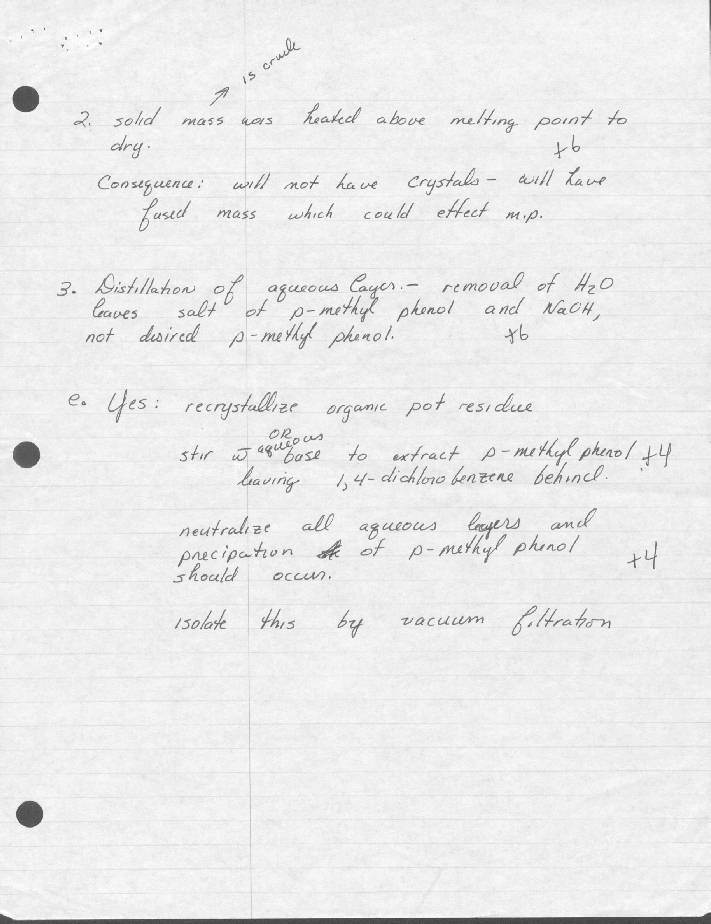 is crude
2. solid mass was heated above melting point to
dry. +6
Consequence: will not have crystals - will have
fused mass which could effect m.p.
3. Distillation of aqueous layer. - removal of H2O
leaves salt of p-methyl phenol and NaOH,
not disired p-methyl phenol. +6
e. Yes: recrystallize organic pot residue
OR
stir w̄ aqueous base to extract p-methyl phenol +4
leaving 1,4-dichlorobenzene behind.
neutralize all aqueous layers and
precipation of p-methyl phenol
should occur. +4
isolate this by vacuum filtration